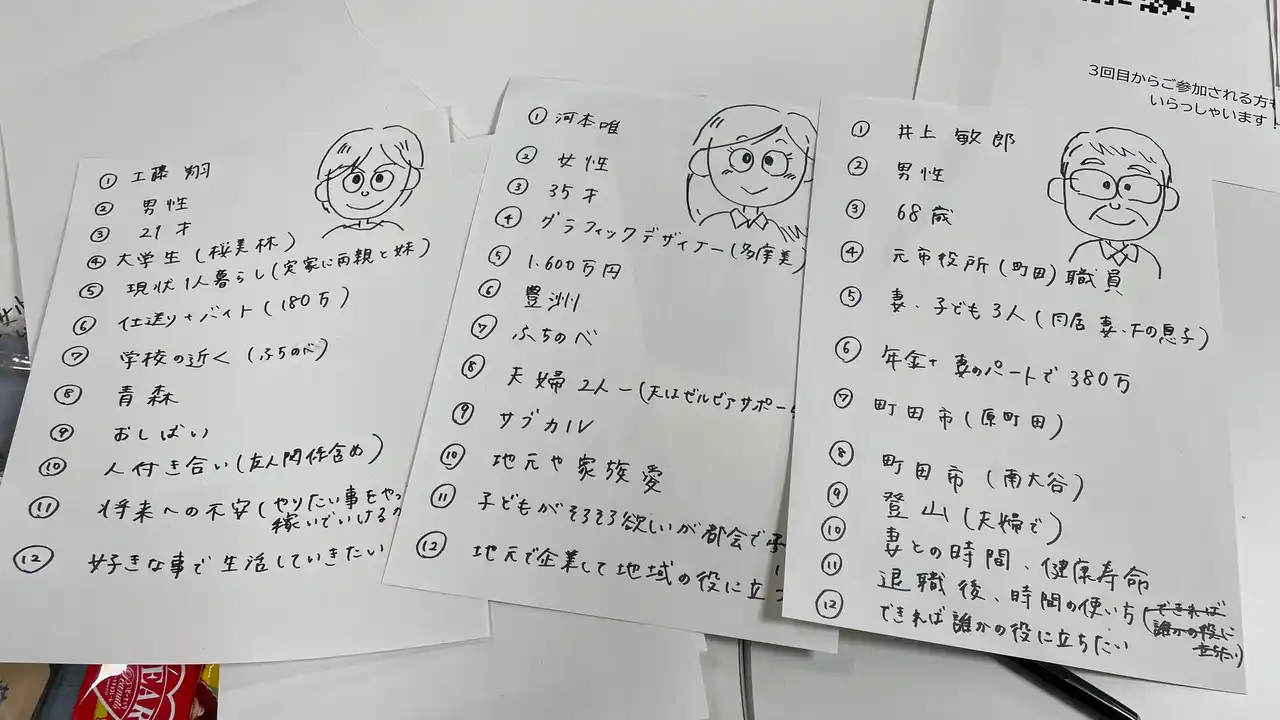 3回目からご参加される方も
いらっしゃいます!
① 工藤 翔
② 男性
③ 21才
④ 大学生(桜美林)
⑤ 現状1人暮らし(実家に両親と妹)
⑥ 仕送り+バイト(180万)
⑦ 学校の近く(ふちのべ)
⑧ 青森
⑨ おしばい
⑩ 人付き合い(友人関係含め)
⑪ 将来への不安(やりたい事をやっ
稼いでいけるの
⑫ 好きな事で生活していきたい
① 河本唯
② 女性
③ 35才
④ グラフィックデザイナー(多摩美)
⑤ 1.600万円
⑥ 豊洲
⑦ ふちのべ
⑧ 夫婦2人ー(夫はゼルビアサポー
⑨ サブカル
⑩ 地元や家族愛
⑪ 子どもがそろそろ欲しいが都会で子
⑫ 地元で企業して地域の役に立
① 井上 敏郎
② 男性
③ 68歳
④ 元市役所(町田)職員
⑤ 妻、子ども3人(同居 妻、下の息子)
⑥ 年金+妻のパートで380万
⑦ 町田市(原町田)
⑧ 町田市(南大谷)
⑨ 登山(夫婦で)
⑩ 妻との時間、健康寿命
⑪ 退職後、時間の使い方(できれば
誰かの役に
立ちたい)
⑫ できれば誰かの役に立ちたい